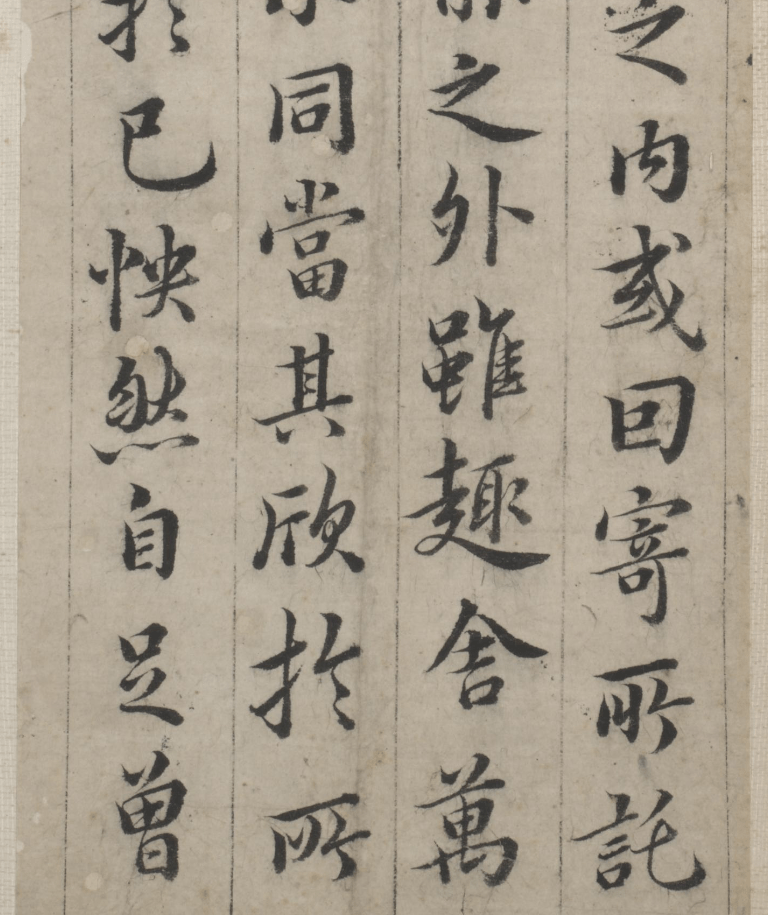 之内或因寄所託
之外雖趣舍萬
同當其欣於所
於己怏然自足曾